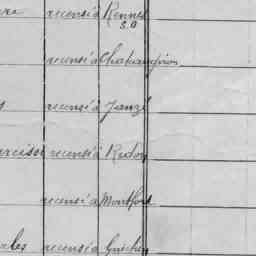 recensé à Rennes
S.O
recensé à Chateaugiron
recensé à Janzé
recensé à Redon
recensé à Montfort
recensé à Guichen